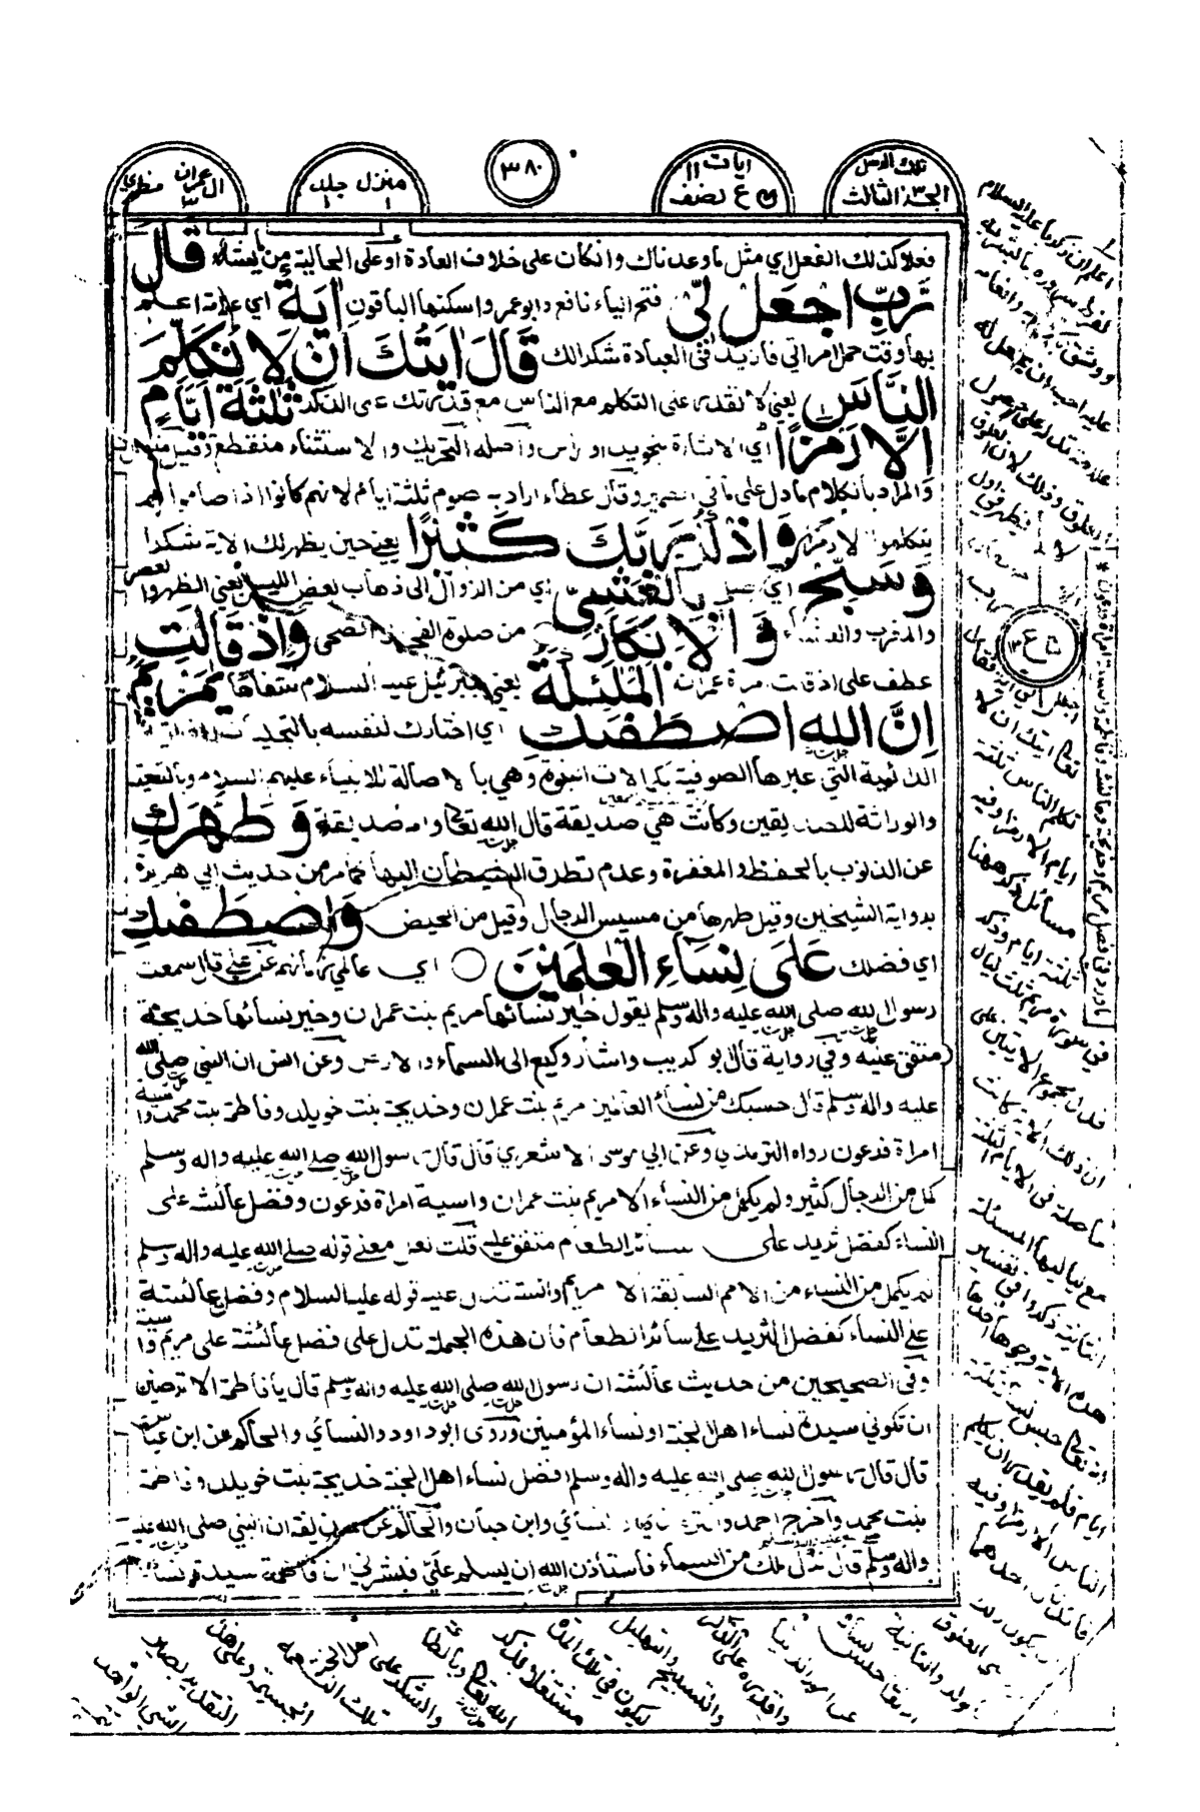 تلك الرسل
الجزء الثالث
ايات ١١
ع نصف
٣٨٠
منزل جلد
١ ١
ال عمران
٣
مظهري
فعلا كذلك الفعل اي مثل ما وعدناك وانكان على خلاف العادة او على الحالية من يشاء قَالَ
رَبِّ اجْعَل لِّيْ فتح الياء نافع وابو عمرو واسكنها الباقون اٰيَةً اي علامة اعلم
بها وقت حمل امراتي فازيد في العبادة شكرا لك قَالَ اٰيَتُكَ اَنْ لَا تُكَلِّمَ
النَّاسَ يعني لا تقدر على التكلم مع الناس مع قدرتك على الذكر ثَلٰثَةَ اَيَّامٍ
اِلَّا رَمْزًا اي الاشارة بنحو يد او راس واصله التحريك والاستثناء منقطع وقيل متصل
والمراد بالكلام ما دل على ما في الضمير وقال عطاء اراد به صوم ثلثة ايام لانهم كانوا اذا صاموا لم
يتكلموا الا رمزا وَاذْكُرْ رَبَّكَ كَثِيْرًا يعني حين يظهر لك الاية شكرا
وَسَبِّحْ اي صل بِالْعَشِيِّ اي من الزوال الى ذهاب بعض الليل يعني الظهر والعصر
والمغرب والعشاء وَالْاِبْكَارِ من صلوة الفجر الى الضحى وَاِذْ قَالَتِ
عطف على اذ قالت امرة عمران الْمَلٰٓئِكَةُ يعني جبرئيل عليه السلام شفاها يٰمَرْيَمُ
اِنَّ اللّٰهَ اصْطَفٰىكِ اي اختارك لنفسه بالتجليات
الذاتية التي عبرها الصوفية بكمالات النبوة وهي بالاصالة للانبياء عليهم السلام وبالتبعية
والوراثة للصديقين وكانت هي صديقة قال الله تعالى وامه صديقة وَطَهَّرَكِ
عن الذنوب بالحفظ والمغفرة وعدم تطرق الشيطان اليها كما مر من حديث ابي هريرة
برواية الشيخين وقيل طهرها من مسيس الرجال وقيل من الحيض وَاصْطَفٰىكِ
اي فضلك عَلٰى نِسَآءِ الْعٰلَمِيْنَ ○ اي عالمي زمانهم عن علي قال سمعت
رسول الله صلى الله عليه واله وسلم يقول خير نسائها مريم بنت عمران وخير نسائها خديجة
متفق عليه وفي رواية قال ابو كريب واشار وكيع الى السماء والارض وعن انس ان النبي صلى الله
عليه واله وسلم قال حسبك من نساء العالمين مريم بنت عمران وخديجة بنت خويلد وفاطمة بنت محمد واسية
امراة فرعون رواه الترمذي وعن ابي موسى الاشعري قال قال رسول الله صلى الله عليه واله وسلم
كمل من الرجال كثير ولم يكمل من النساء الا مريم بنت عمران واسية امراة فرعون وفضل عائشة على
النساء كفضل ثريد على سائر الطعام متفق عليه قلت لعل معنى قوله صلى الله عليه واله وسلم
لم يكمل من النساء من الامم السابقة الا مريم واسية تدل عليه قوله عليه السلام وفضل عائشة
على النساء كفضل الثريد على سائر الطعام فان هذه الجملة تدل على فضل عائشة على مريم واسية
وفي الصحيحين من حديث عائشة ان رسول الله صلى الله عليه واله وسلم قال يا فاطمة الا ترضين
ان تكوني سيدة نساء اهل الجنة او نساء المؤمنين وروى ابو داود والنسائي والحاكم عن ابن عباس
قال قال رسول الله صلى الله عليه واله وسلم افضل نساء اهل الجنة خديجة بنت خويلد وفاطمة
بنت محمد واخرج احمد والترمذي والنسائي وابن حبان والحاكم عن حذيفة ان النبي صلى الله عليه
واله وسلم قال نزل ملك من السماء فاستاذن الله ان يسلم علي فبشرني ان فاطمة سيدة نساء
اعلم ان زكريا عليه السلام
ووثوق
عليه احب ان
علامة تدل على حصول
العلوق وذلك لان العلوق
لا يظهر في اول
اجعل لي اية فقال
تعالى ايتك ان لا
تكلم الناس ثلثة
ايام الا رمزا وفيه
مسائل ذكر ههنا
ثلثة ايام وذكر
في سورة مريم ثلث ليال
فدل مجموع الايتين على
ان تلك الاية كانت
حاصلة في الايام الثلثة
مع لياليها المسئلة
الثانية ذكروا في تفسير
هذه الاية وجوها احدها
انه تعالى حبس لسانه ثلثة
ايام فلم يقدر ان يكلم
الناس الا رمزا وفيه
فائدتان احدهما
ان يكون ذلك
العلوق
والثانية
انه تعالى حبس لسانه
عن امور الدنيا
واقدره على الذكر
والتسبيح والتهليل
ليكون في تلك المدة
مشتغلا بذكر
الله تعالى وبالطاعة
والشكر على
تلك النعمة
الجسيمة وعلى هذا
التقدير يصير
الشيء الواحد
ع
٣
ما ورد في فضل مريم وخديجة وعائشة وفاطمة واسية امراة فرعون